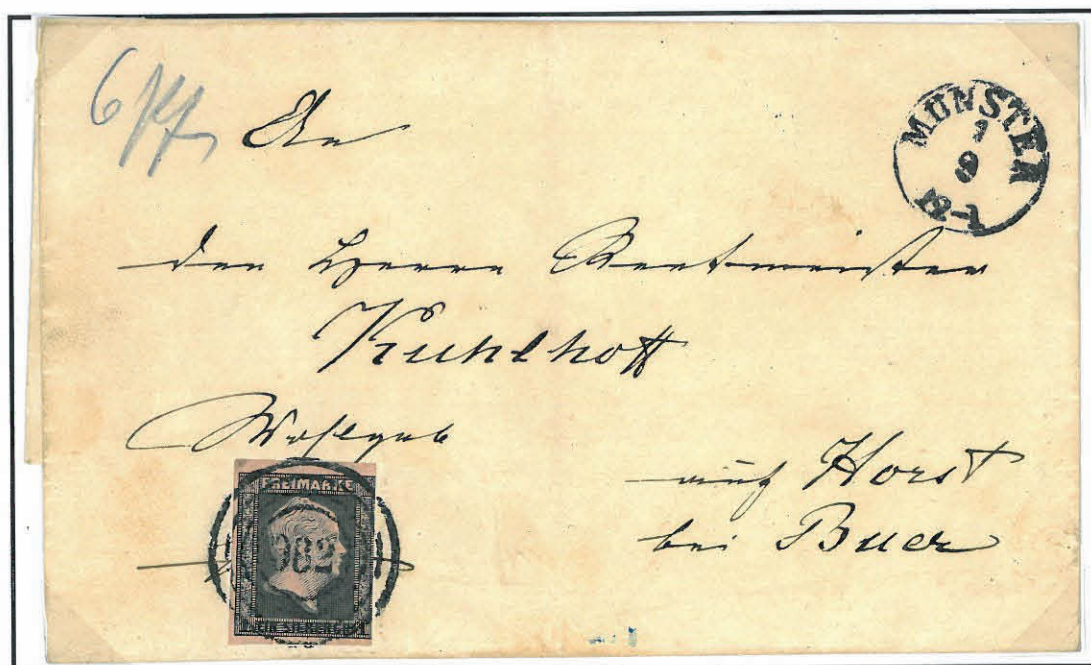 6 Pf
An
MÜNSTER
1
9
den Herrn Rentmeister
Kuhlhoff
Wohlgeb
auf Horst
bei Buer
FREIMARKE
982
EIN SILBERGR.